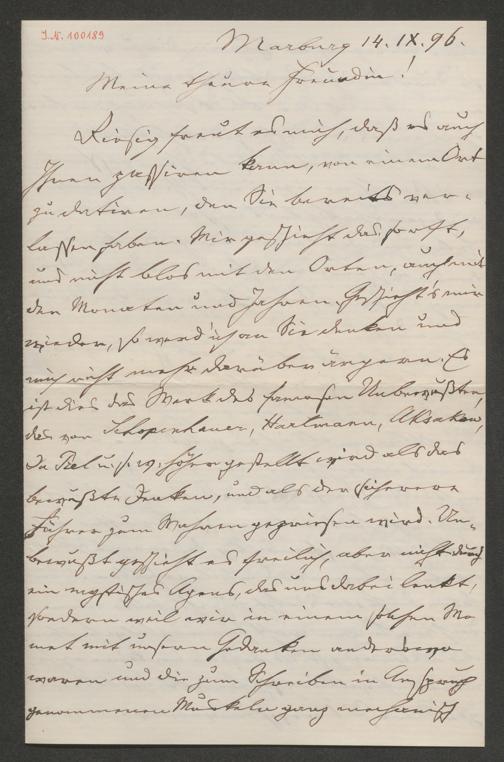 I.N. 100189
Marburg 14. IX. 96.
Meine theure Freundin!
Riesig freut es mich, daß es auch
Ihnen passiren kann, von einem Ort
zu datiren, den Sie bereits ver-
lassen haben. Mir geschieht das so oft,
und nicht blos mit den Orten, auch mit
den Monaten und Jahren. Geschieht's mir
wieder, so werd' ich an Sie denken und
mich nicht mehr darüber ärgern. Es
ist dies das Werk des famosen Unbewußten,
das von Schopenhauer, Hartmann, Aksakow,
Du Prel u. s. w. höher gestellt wird als das
bewußte Denken, und als der sicherere
Führer zum Wahren gepriesen wird. Un-
bewußt geschieht es freilich, aber nicht durch
ein mystisches Agens, das uns dabei lenkt,
sondern weil wir in einem solchen Mo-
ment mit unsern Gedanken anderswo
waren und die zum Schreiben in Anspruch
genommenen Muskeln ganz mechanisch